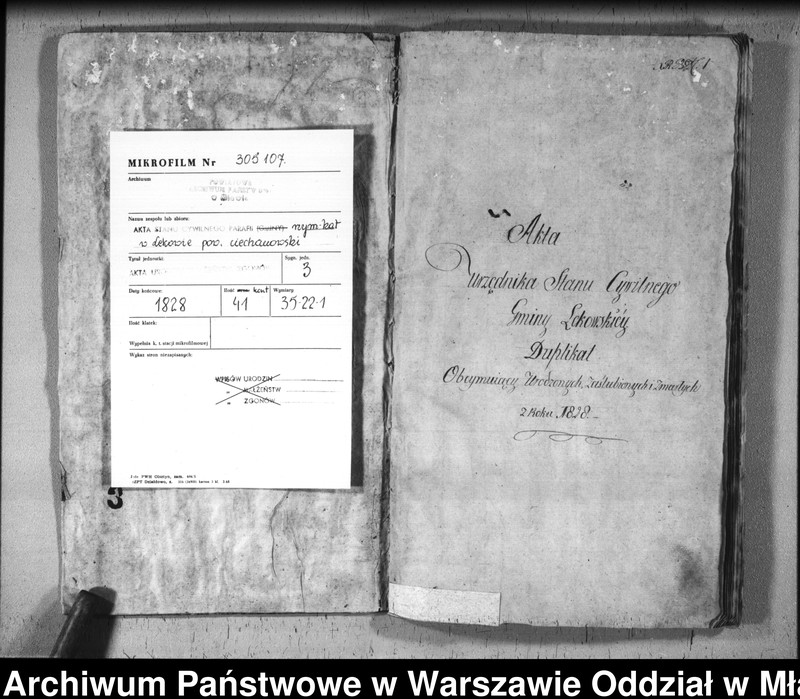 MIKROFILM Nr 305107.
Archiwum
Nazwa zespołu lub zbioru:
AKTA STANU CYWILNEGO PARAFII (GMINY) rzym-kat
w Lekowie pow. ciechanowski
Tytuł jednostki:
AKTA
Sygn. jedn.
3
Daty końcowe:
1828
Ilość kart
41
Wymiary
35-22-1
Ilość klatek:
Wypełnia k. t. stacji mikrofilmowej
Wykaz stron niezapisanych:
WPISÓW URODZIN
" MAŁŻEŃSTW
" ZGONÓW
3
Akta
Urzędnika Stanu Cywilnego
Gminy Lekowskiéy
Duplikat
Obeymuiący Urodzonych, Zaślubionych i Zmarłych
z Roku 1828.
Archiwum Państwowe w Warszawie Oddział w Mł